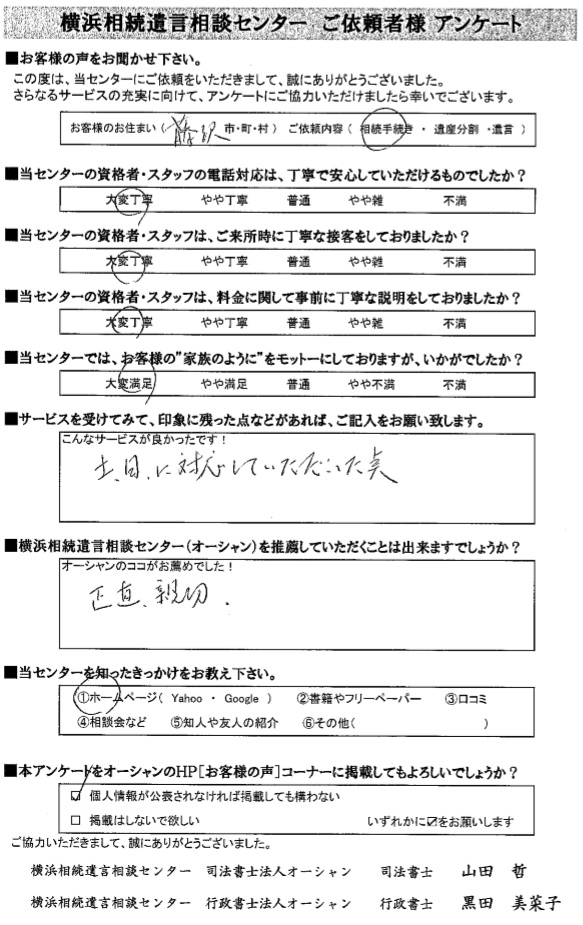 横浜相続遺言相談センター ご依頼者様 アンケート
■お客様の声をお聞かせ下さい。
この度は、当センターにご依頼をいただきまして、誠にありがとうございました。
さらなるサービスの充実に向けて、アンケートにご協力いただけましたら幸いでございます。
お客様のお住まい（藤沢 市・町・村） ご依頼内容（ 相続手続き ・ 遺産分割 ・遺言 ）
■当センターの資格者・スタッフの電話対応は、丁寧で安心していただけるものでしたか？
大変丁寧 やや丁寧 普通 やや雑 不満
■当センターの資格者・スタッフは、ご来所時に丁寧な接客をしておりましたか？
大変丁寧 やや丁寧 普通 やや雑 不満
■当センターの資格者・スタッフは、料金に関して事前に丁寧な説明をしておりましたか？
大変丁寧 やや丁寧 普通 やや雑 不満
■当センターでは、お客様の”家族のように”をモットーにしておりますが、いかがでしたか？
大変満足 やや満足 普通 やや不満 不満
■サービスを受けてみて、印象に残った点などがあれば、ご記入をお願い致します。
こんなサービスが良かったです！
土、日、に対応していただいた点
■横浜相続遺言相談センター（オーシャン）を推薦していただくことは出来ますでしょうか？
オーシャンのココがお薦めでした！
正直、親切.
■当センターを知ったきっかけをお教え下さい。
①ホームページ（ Yahoo ・ Google ） ②書籍やフリーペーパー ③口コミ
④相談会など ⑤知人や友人の紹介 ⑥その他（ ）
■本アンケートをオーシャンのHP［お客様の声］コーナーに掲載してもよろしいでしょうか？
☑ 個人情報が公表されなければ掲載しても構わない
□ 掲載はしないで欲しい いずれかに☑をお願いします
ご協力いただきまして、誠にありがとうございました。
横浜相続遺言相談センター 司法書士法人オーシャン 司法書士 山田 哲
横浜相続遺言相談センター 行政書士法人オーシャン 行政書士 黒田 美菜子